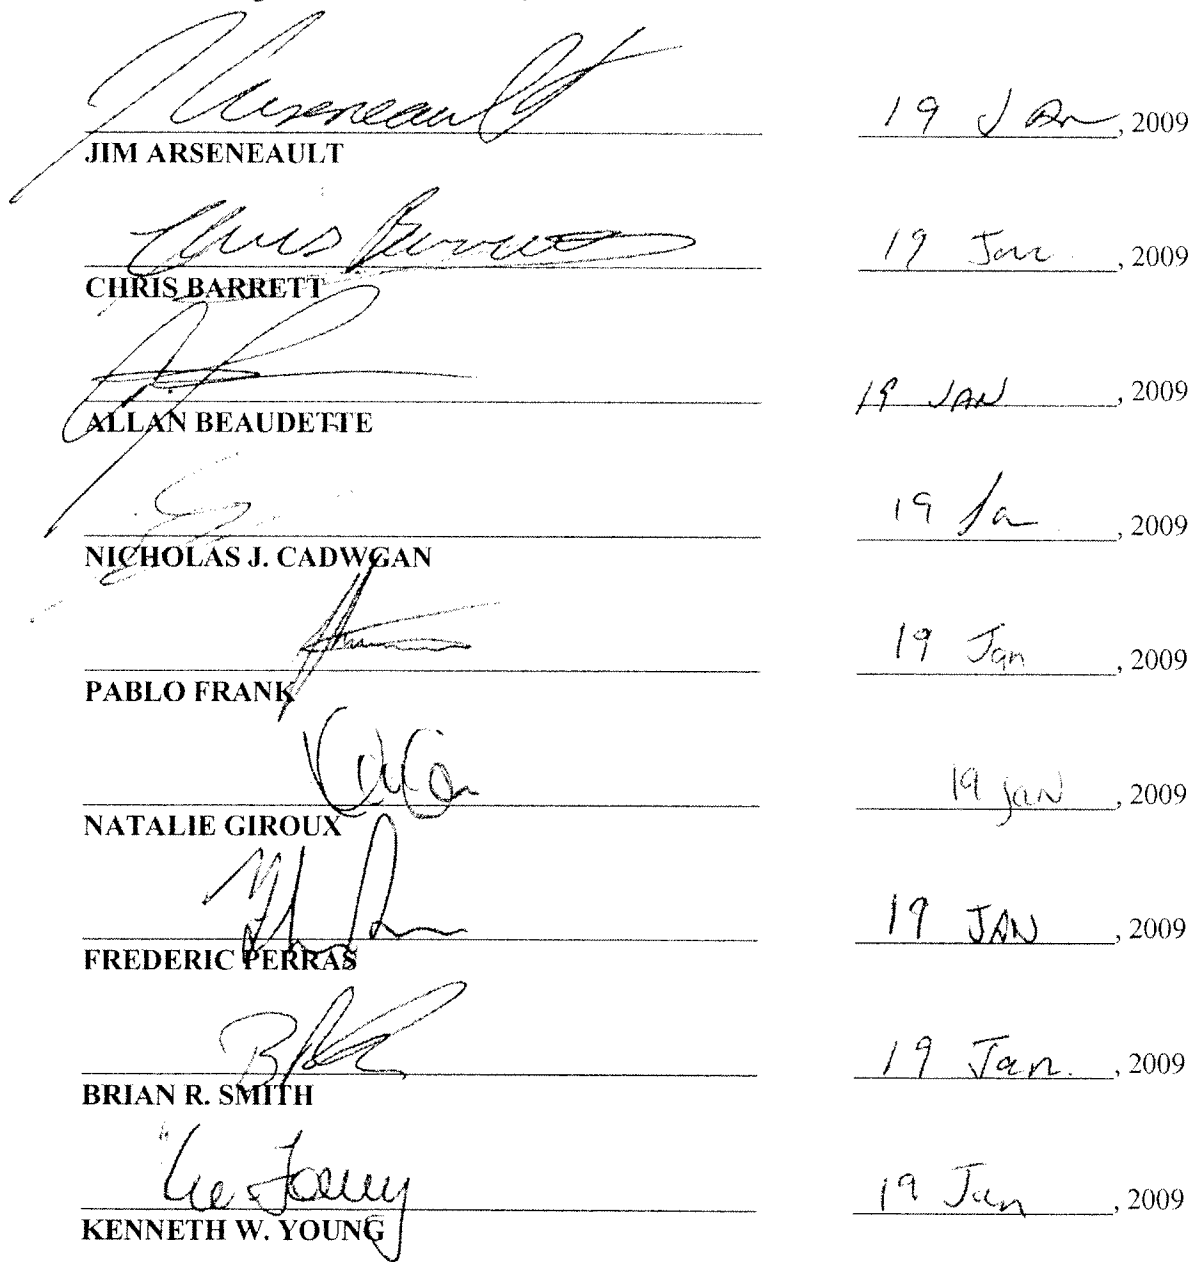 J Arseneault 19 JAN, 2009
JIM ARSENEAULT
Chris Barrett 19 Jan, 2009
CHRIS BARRETT
19 JAN, 2009
ALLAN BEAUDETTE
19 Ja, 2009
NICHOLAS J. CADWGAN
19 Jan, 2009
PABLO FRANK
19 JAN, 2009
NATALIE GIROUX
19 JAN, 2009
FREDERIC PERRAS
19 Jan., 2009
BRIAN R. SMITH
19 Jan, 2009
KENNETH W. YOUNG